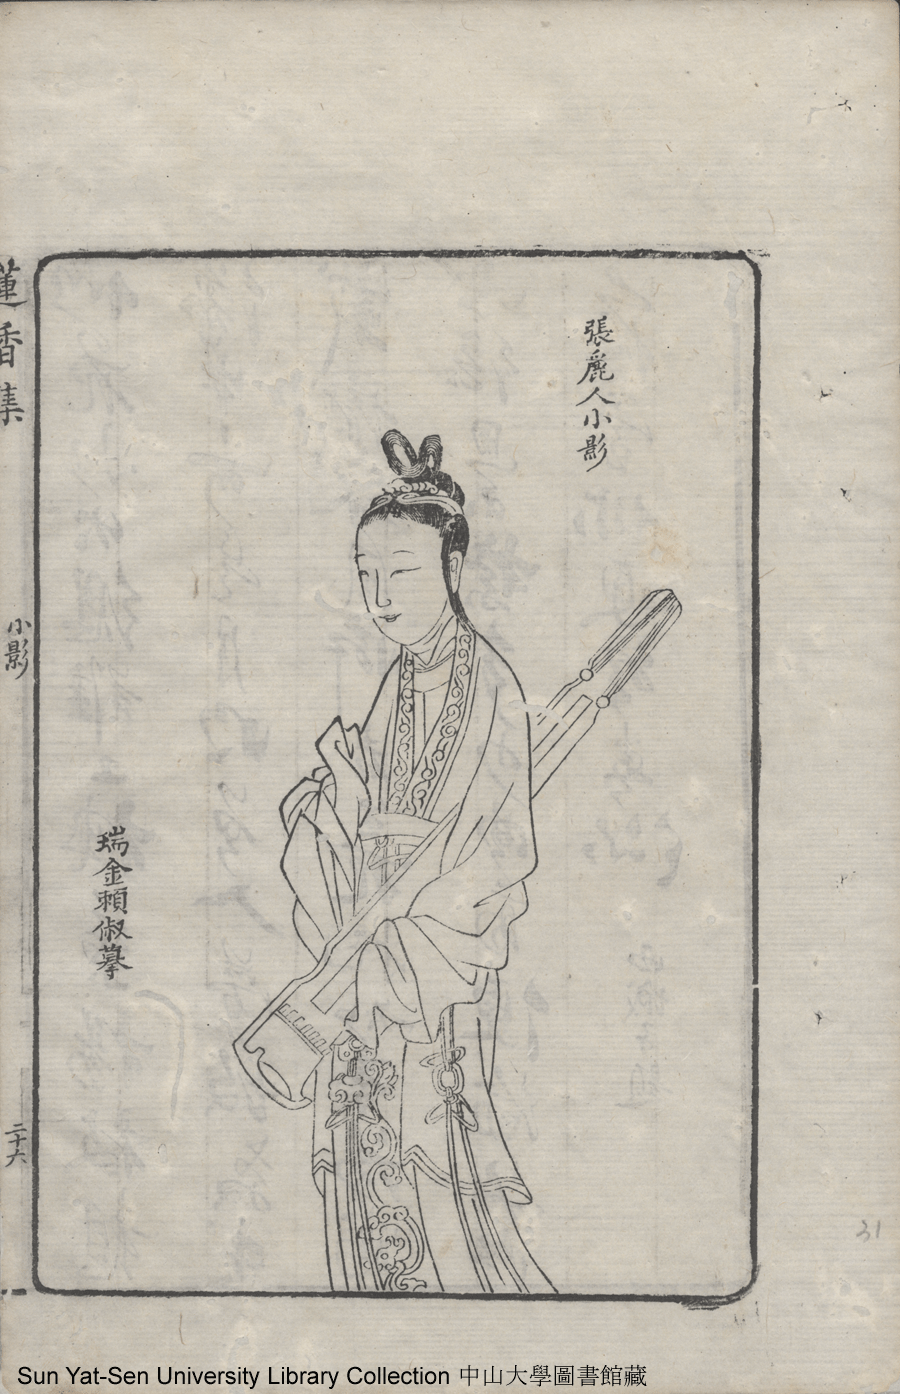 張麗人小影
瑞金賴俶摹
蓮香集
小影
二十六
31
Sun Yat-Sen University Library Collection 中山大學圖書館藏